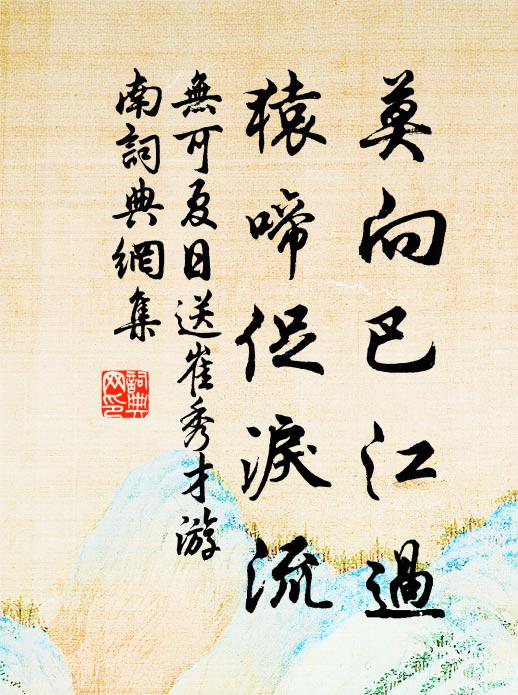 莫向巴江過
猿啼促淚流
無可夏日送崔秀才游
南詞典網集
詞典网印